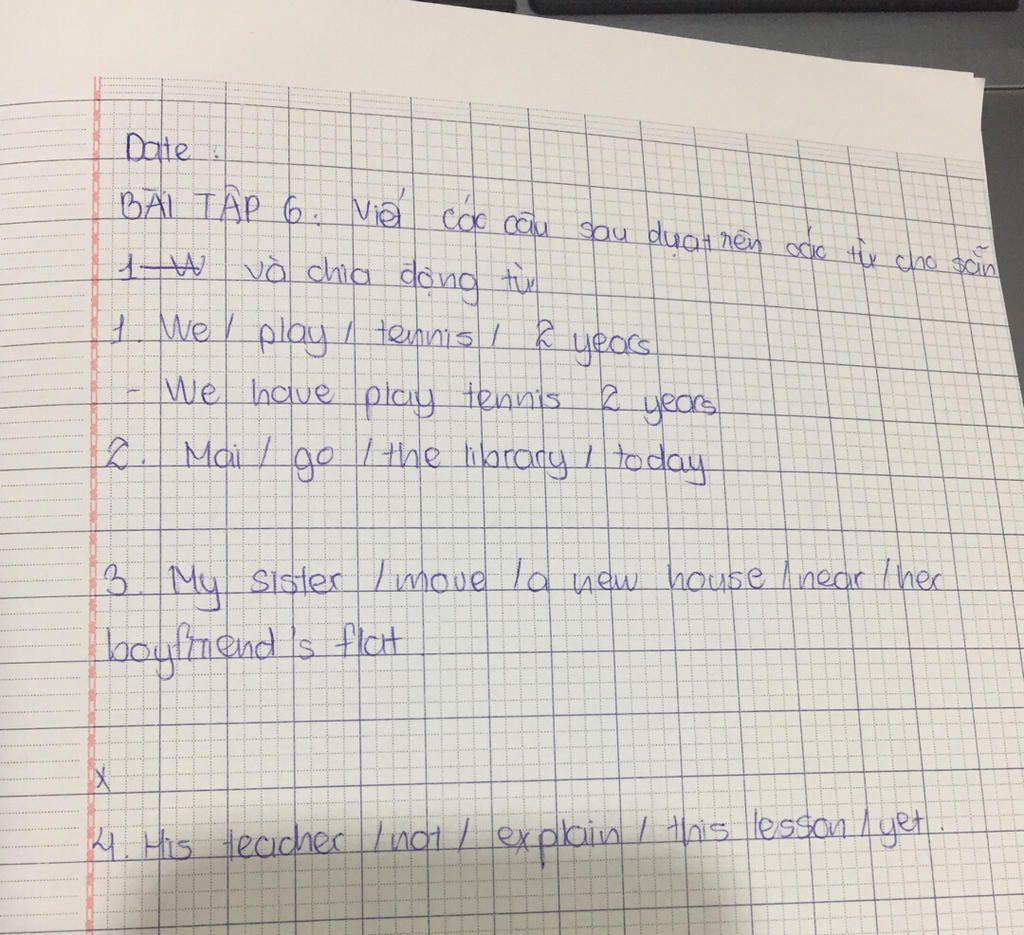 Date :
BÀI TẬP 6. Viế các câu sau dựa trên các từ cho sẵn
1 W và chia động từ
1. We / play / tennis / 2 years
- We have play tennis 2 years
2. Mai / go / the library / today
3. My sister / move / a new house / near / her
boyfriend's flat
x
4. His teacher / not / explain / this lesson / yet.